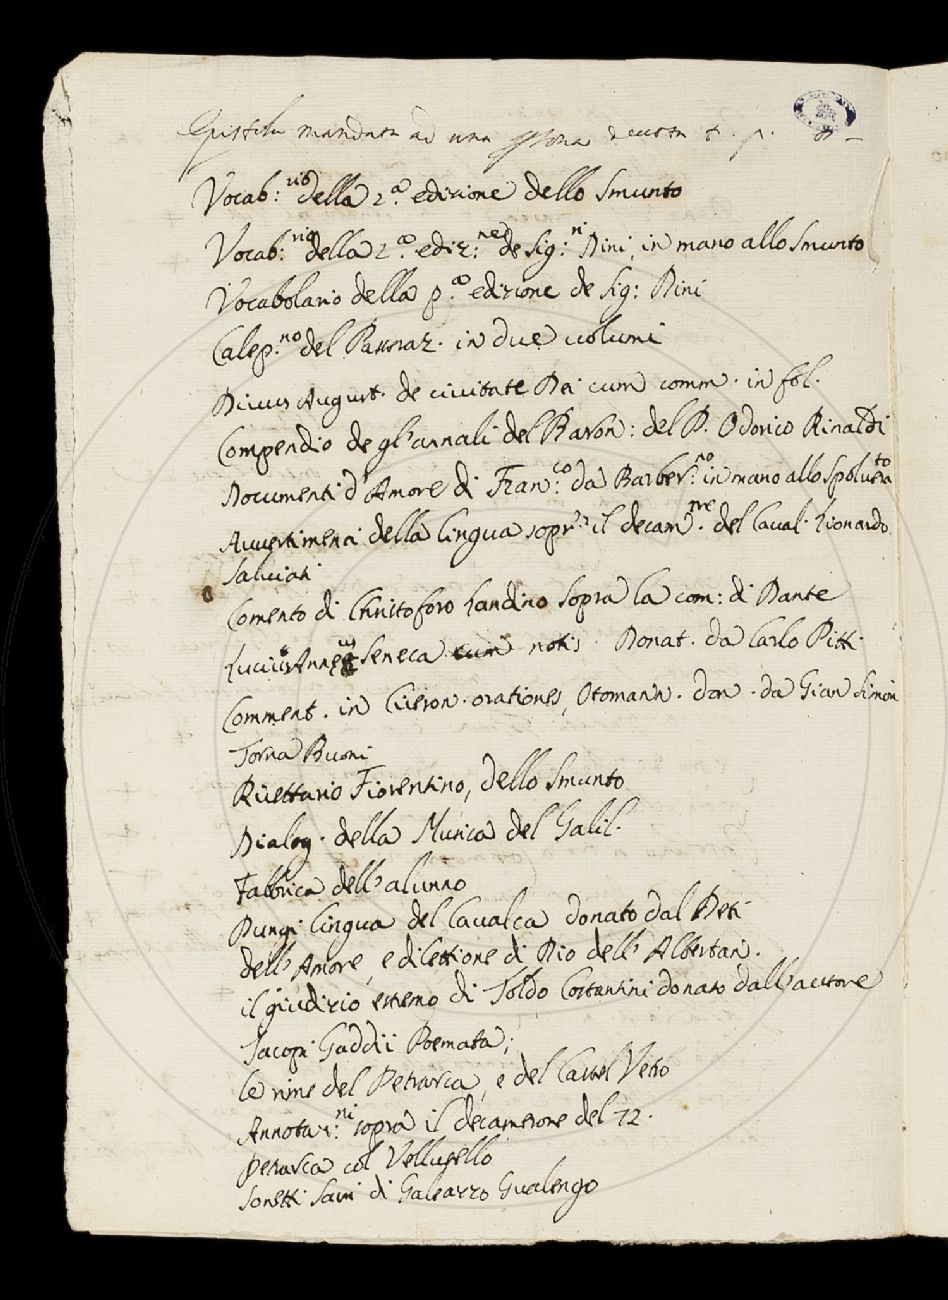 Epistola mandata ad una psona devota
Vocab:rio della 2.a edizione dello Smunto
Vocab:rio della 2.a ediz:ne de Sig:ri Dini, in mano allo Smunto
Vocabolario della p.a edizione de Sig: Dini
Calep.no del Passeraz. in due volumi
Divus August. de civitate Dei cum comm. in fol.
Compendio de gl'annali del Baron: del P. Odorico Rinaldi
Documenti d'Amore di Fran:co da Barber:no in mano allo Spolverato
Avvertimenti della lingua sopr' il decam:ne del Caval. Lionardo
Salviati
Comento di Christoforo Landino sopra la com: di Dante
Lucius Anneus Seneca cum notis. Donat. da Carlo Pitti
Comment. in Ciceron. orationes, Otomann. don. da Gian Simon
Torna Buoni
Ricettario Fiorentino, dello Smunto
Dialog. della Musica del Galil.
Fabbrica dell'alunno
Pungi lingua del Cavalca donato dal Deti
dell'Amore, e dilettione di Dio dell'Albertan.
il giudizio estremo di Toldo Costantini donato dall'autore
Jacopi Gaddii Poemata;
le rime del Petrarca, e del Castel Vetro
Annotaz:ni sopra il decamerone del 72.
Petrarca col Vellutello
Sonetti Savi di Galeazzo Gualengo